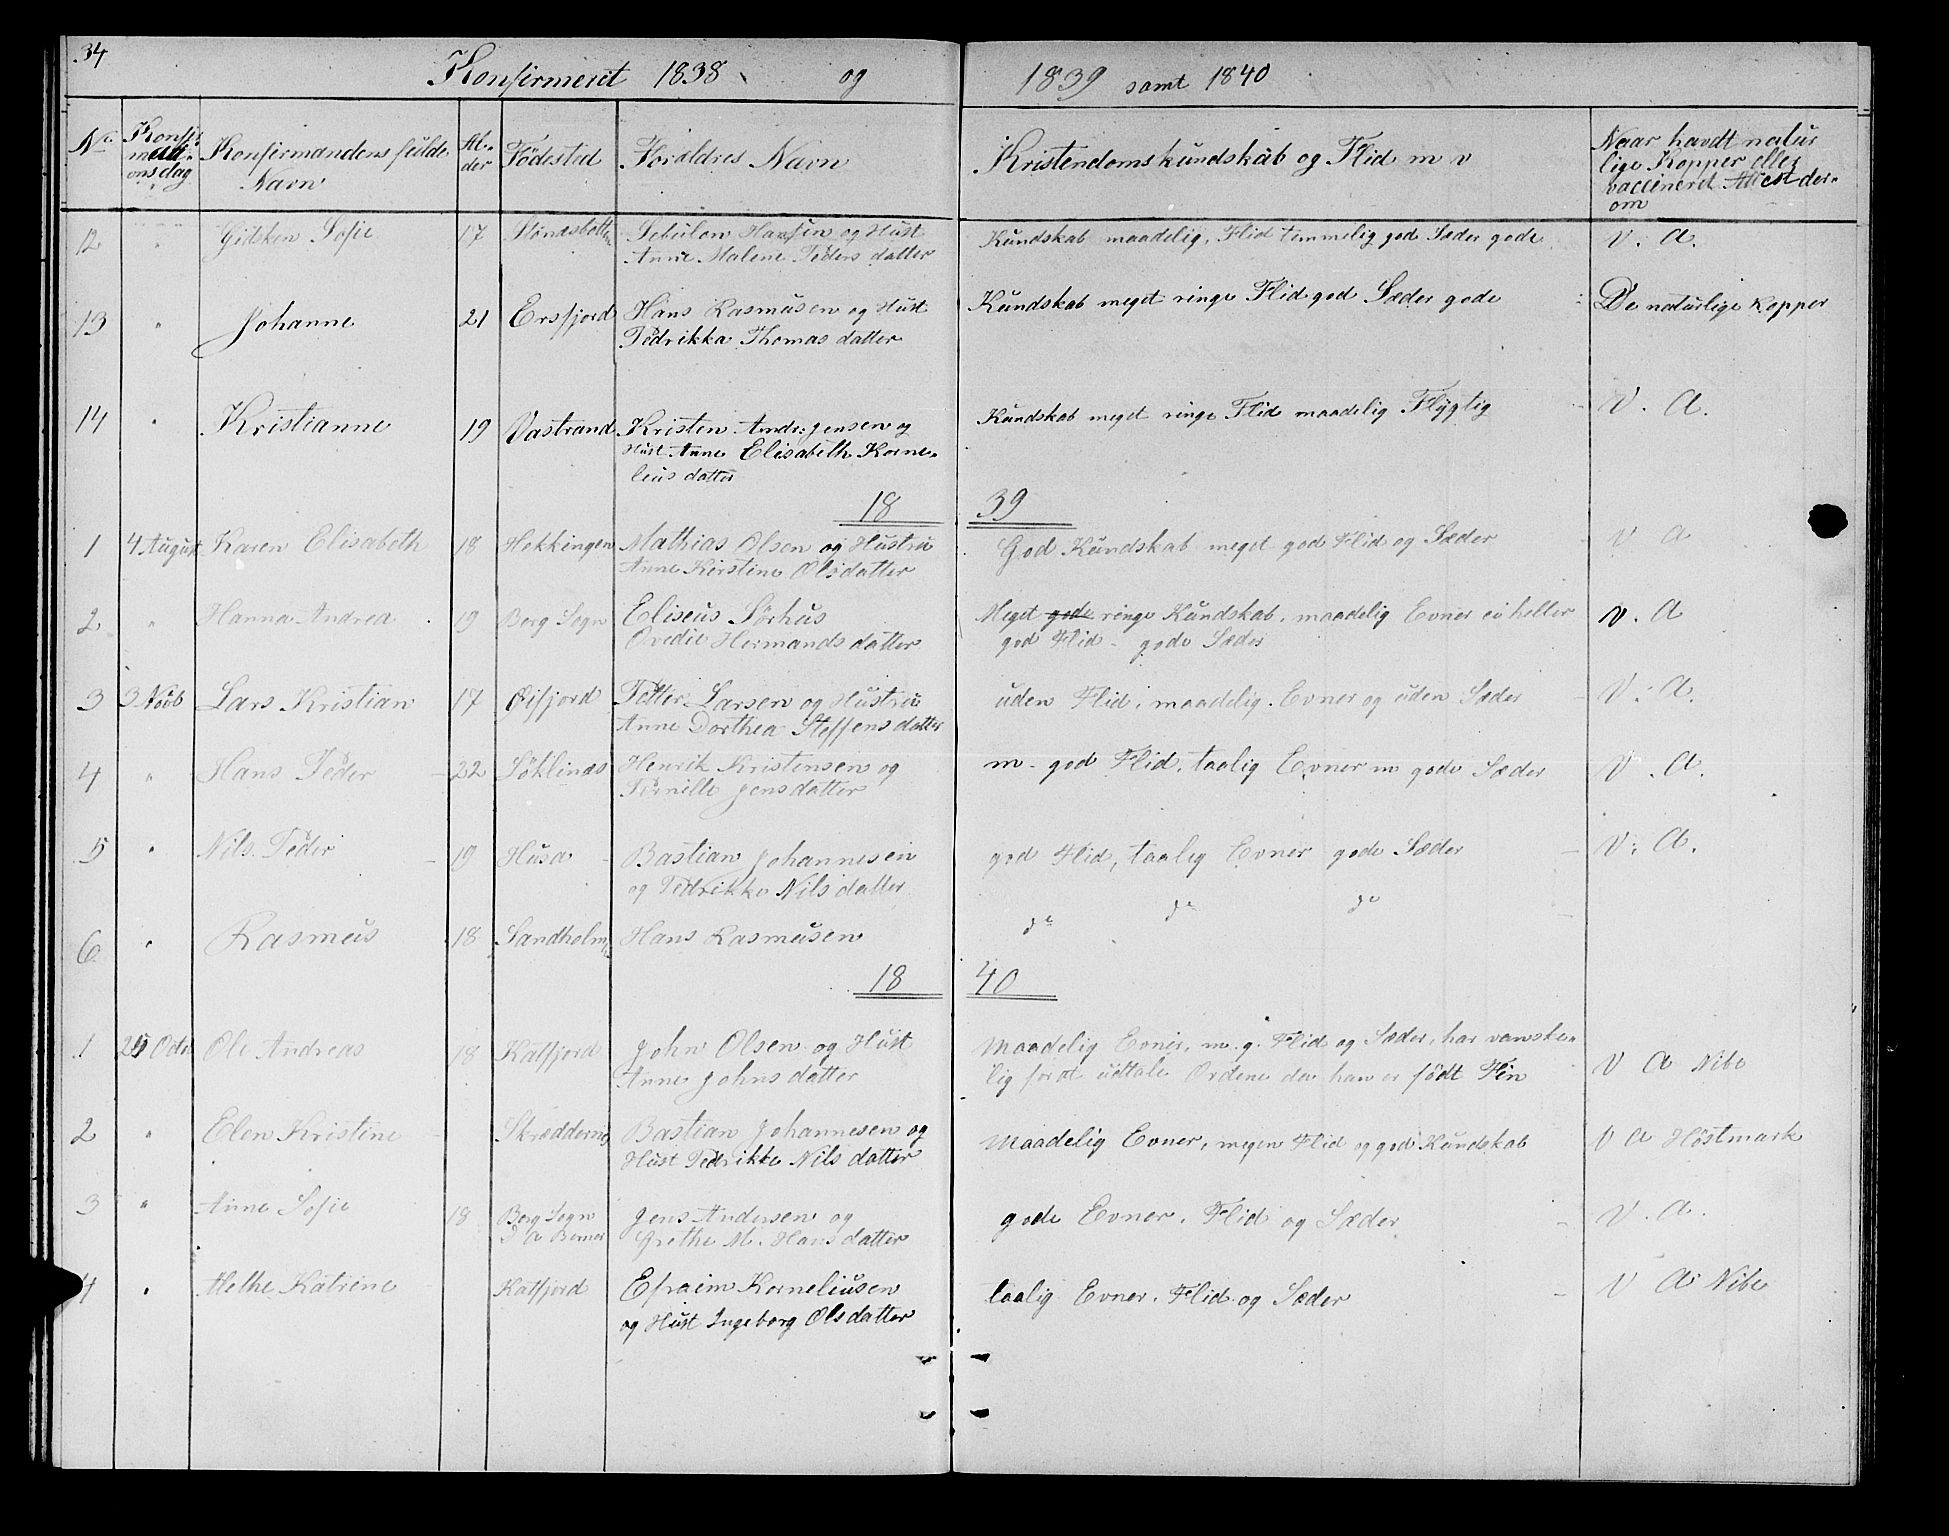 34
Konfirmeret 1838 og 1839 samt 1840
No. Konfirmationsdag Konfirmandens fulde Navn Alder Fødested Foraldres Navn Kristendomskundskab og Flid m v Naar havdt naturlige Kopper eller vaccineret Attest derom
12 " Gidsken Sofie 17 Sebulon Hansen og Hust Kundskab maadelig, Flid temmelig god Sæder gode V. A.
Anne Malene Peders datter
13 " Johanne 21 Ersfjord Hans Rasmusen og Hust Kundskab meget ringe Flid god Sæder gode De naturlige Kopper
Pedrikka Thomas datter
14 " Kristianne 19 Vastrand Kristen Andr. Jensen og Kundskab meget ringe Flid maadelig Flygtig V. A.
Hust Anne Elisabeth Korne-
lius datter
18 39
1 4 August Karen Elisabeth 18 Hekkingen Mathias Olsen og Hustru God Kundskab meget god Flid og Sæder V A
Anne Kirstine Olsdatter
2 " Hanna Andrea 19 Berg Sogn Eliseus Sørhus Meget gode ringe Kundskab, maadelig Evner ei heller V. A
Ovedie Hermands datter god Flid - gode Sæder
3 3 Novb Lars Kristian 17 Øifjord Petter Larsen og Hustru uden Flid, maadelig. Evner og uden Sæder V. A.
Anne Dorthea Steffens datter
4 " Hans Peder 22 Søklinæs Henrik Kristensen og m. god Flid, taalig Evner m gode Sæder V. A.
Pernille Jens datter
5 " Nils Peder 19 Husa Bastian Johannesen god Flid, taalig Evner gode Sæder V. A.
og Pedrikke Nils datter
6 " Rasmus 18 Sandholm Hans Rasmusen do do do
18 40
1 25 Ole Andreas 18 Katfjord John Olsen og Hust Maadelig Evner, m. g. Flid og Sæder, har vanske-
Anne Johns datter lig for at udtale Ordene da han er født Fin V A Nibe
2 " Elen Kristine Bastian Johannesen og Maadelig Evner, megen Flid og god Kundskab V A Høstmark
Hust Pedrikke Nils datter
3 " Anne Sofie 18 Berg Sogn Jens Andersen og gode Evner, Flid og Sæder V. A.
Grethe M. Hans datter
4 " Methe Katrine Katfjord Efraim Korneliusen taalig Evner, Flid og Sæder V A Nibe
og Hust Ingeborg Olsdatter